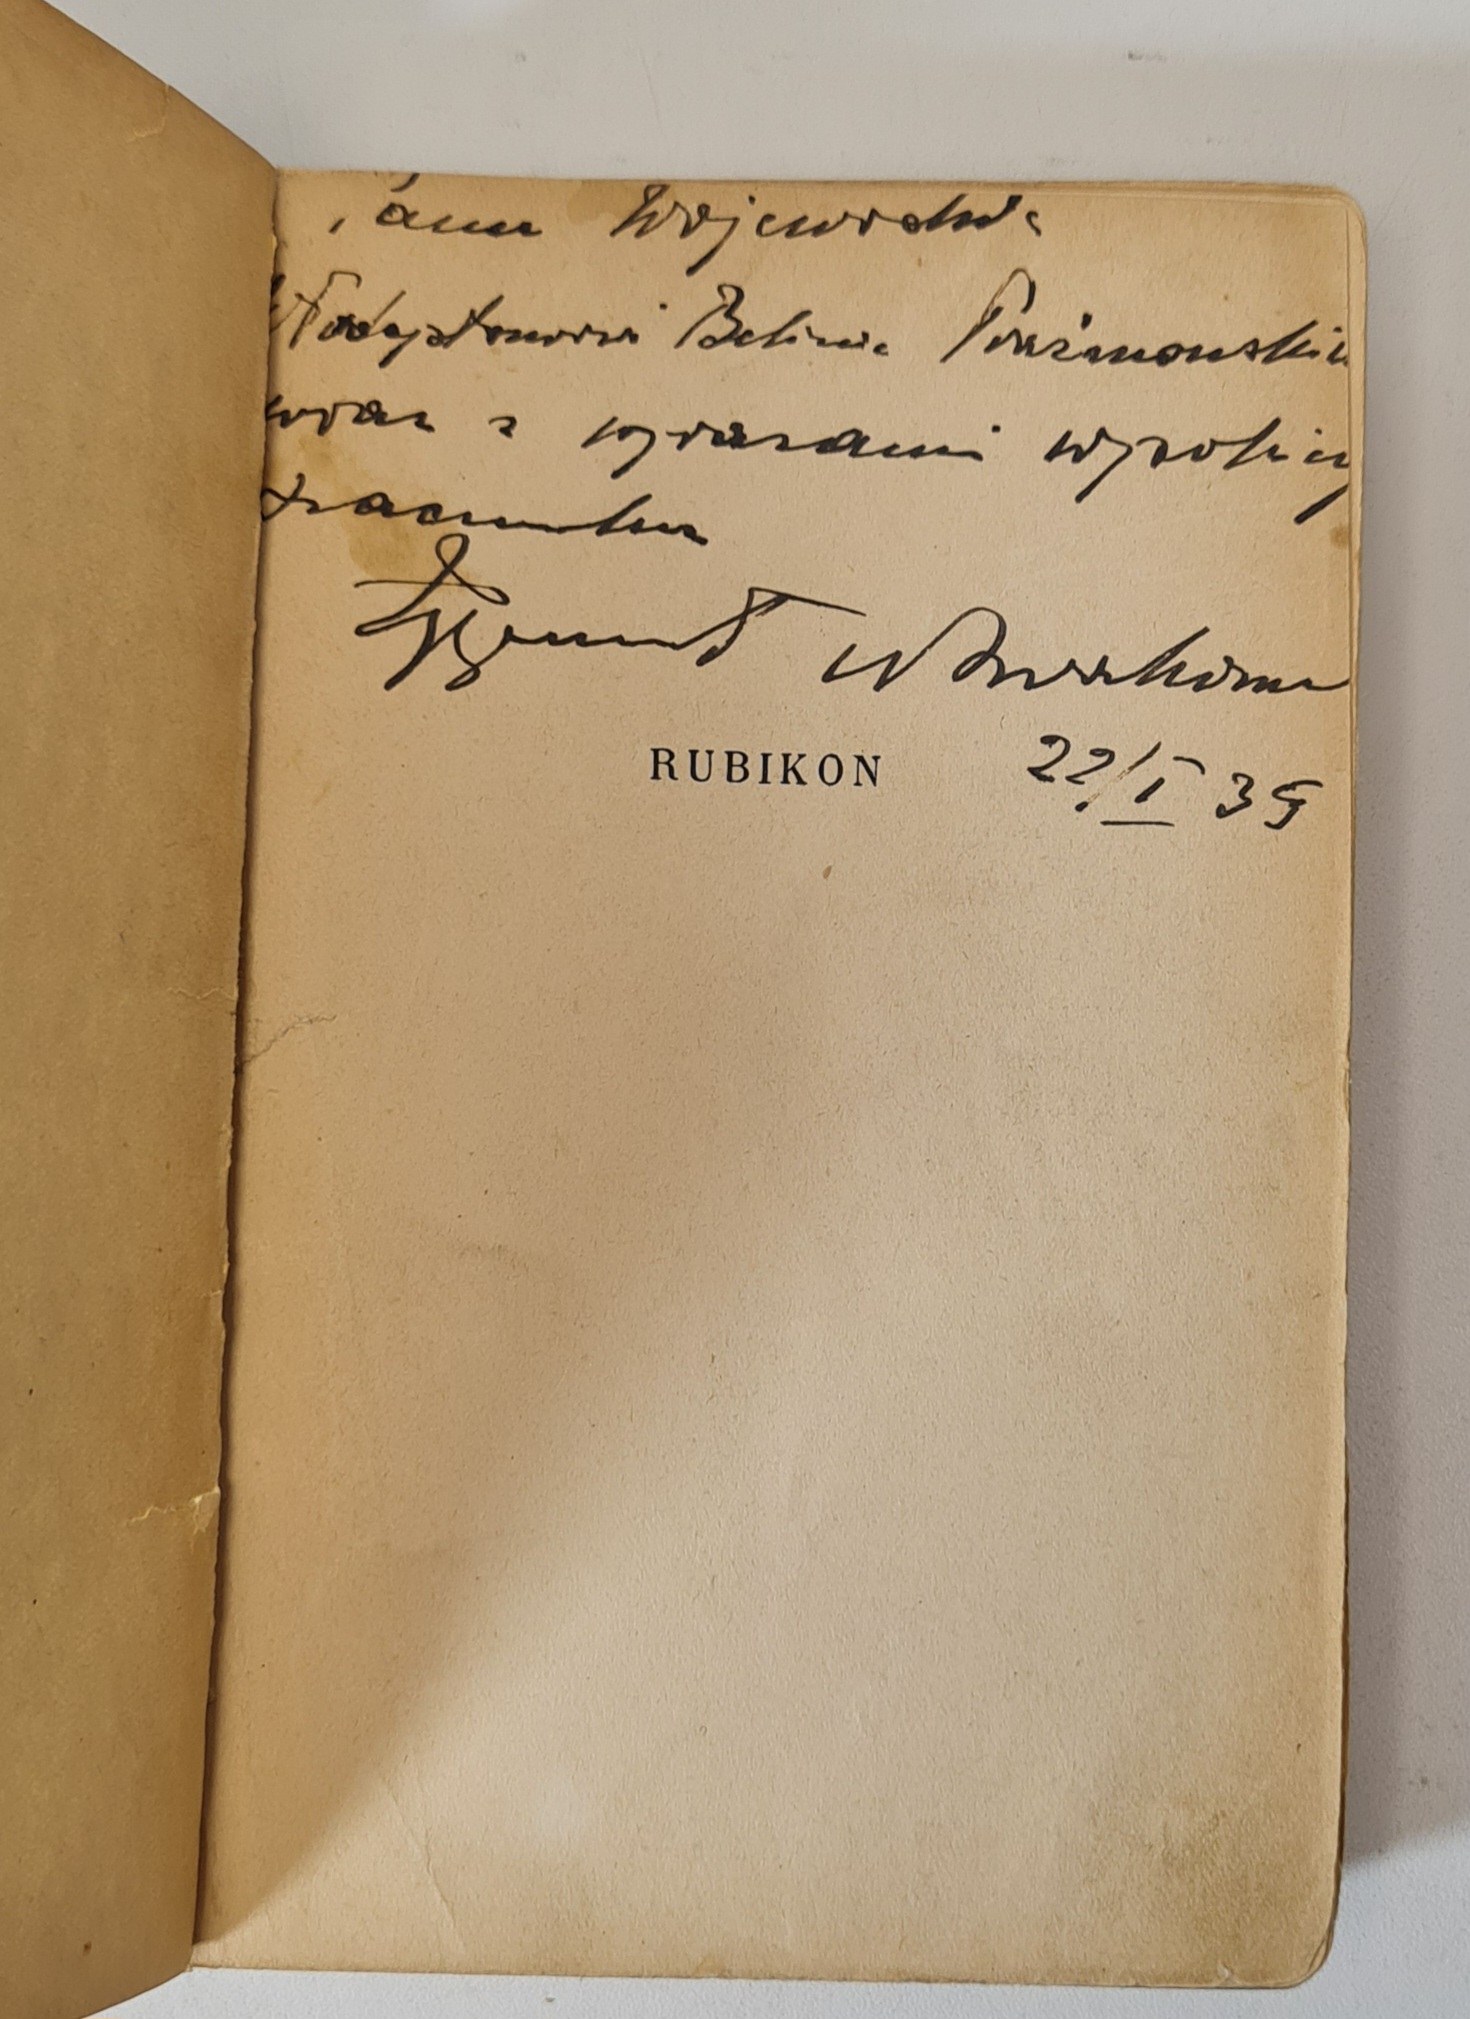 Panu Wojewodzie
Władysławowi Belinie Prażmowskiem
wraz z wyrazami wysokieg
szacunku
Zygmunt Nowakowski
RUBIKON
22/I 39